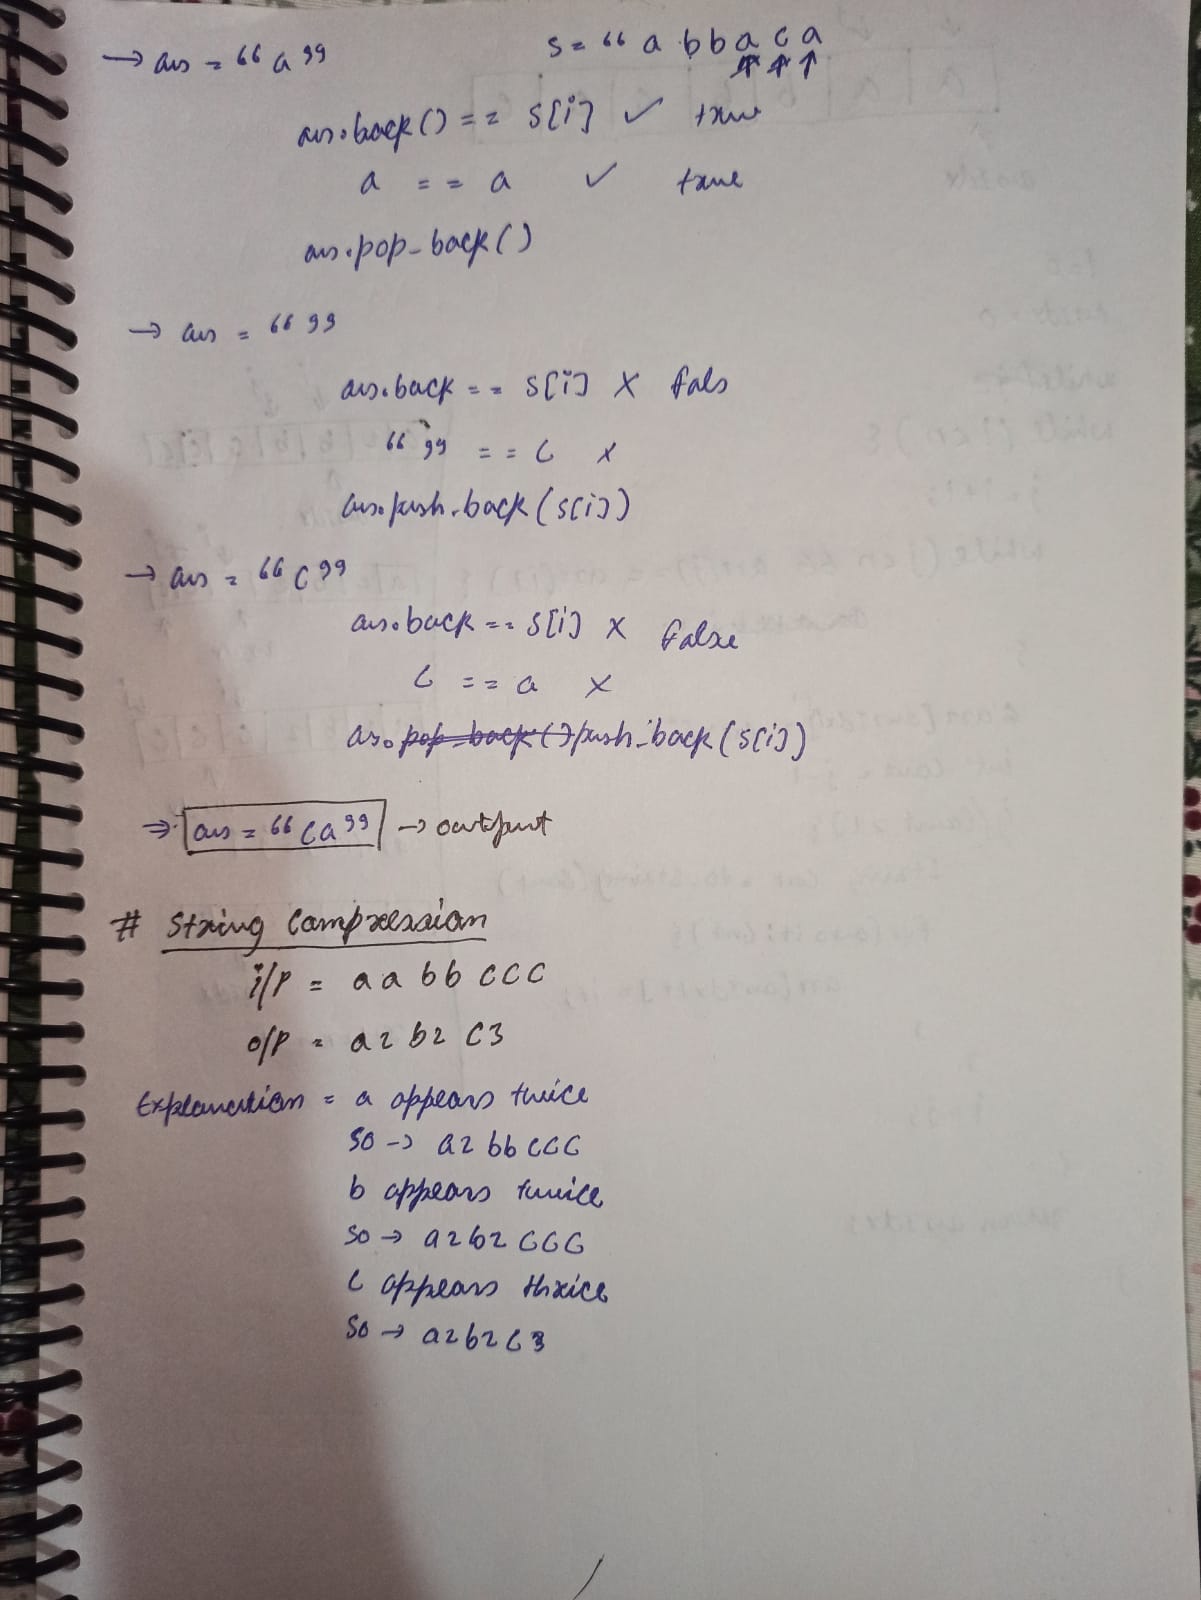 → ans = “a”
s = “a b b a c a
ans.back() == s[i] ✓ true
a == a ✓ true
ans.pop_back()
→ ans = “ ”
ans.back == s[i] X fals
“ ” == c X
ans.push.back(s[i])
→ ans = “c”
ans.back == s[i] X false
c == a X
ans.pop_back()push_back(s[i])
⇒ ans = “ca” → output
# String Compression
i/p = a a b b c c c
o/p = a2 b2 c3
Explanation = a appears twice
so → a2 bb ccc
b appears twice
so → a2b2 ccc
c appears thrice
so → a2b2c3